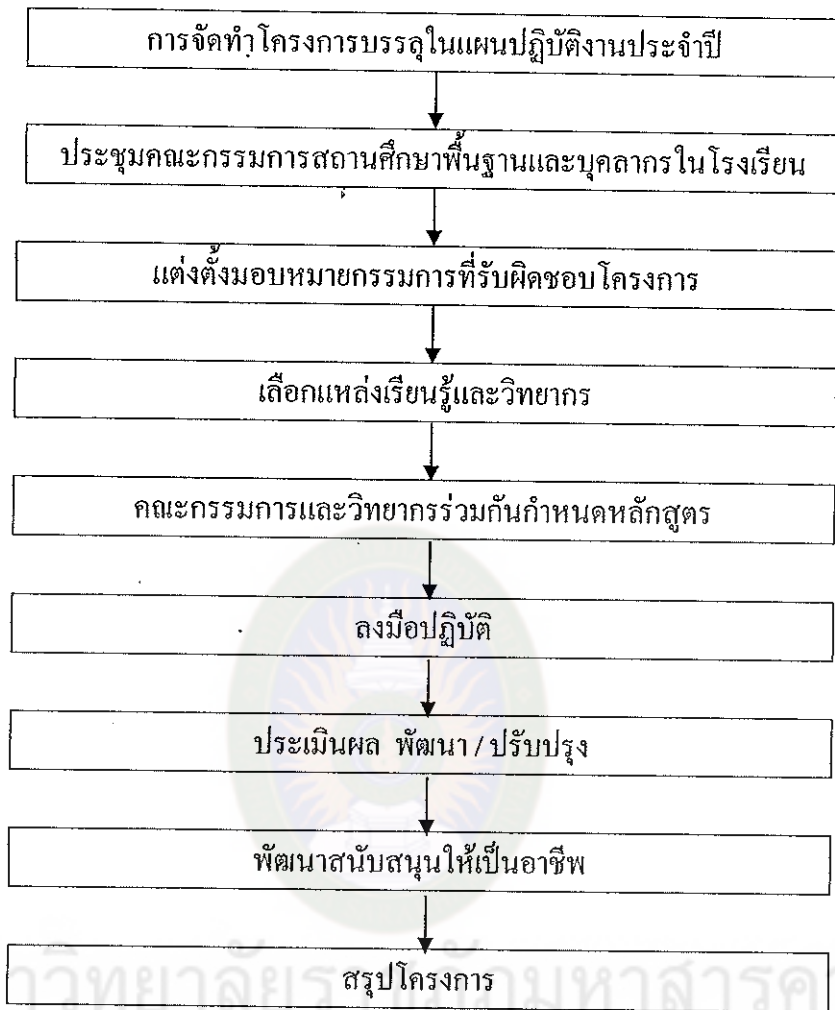 การจัดทำโครงการบรรลุในแผนปฏิบัติงานประจำปี
ประชุมคณะกรรมการสถานศึกษาพื้นฐานและบุคลากรในโรงเรียน
แต่งตั้งมอบหมายกรรมการที่รับผิดชอบโครงการ
เลือกแหล่งเรียนรู้และวิทยากร
คณะกรรมการและวิทยากรร่วมกันกำหนดหลักสูตร
ลงมือปฏิบัติ
ประเมินผล พัฒนา / ปรับปรุง
พัฒนาสนับสนุนให้เป็นอาชีพ
สรุปโครงการ